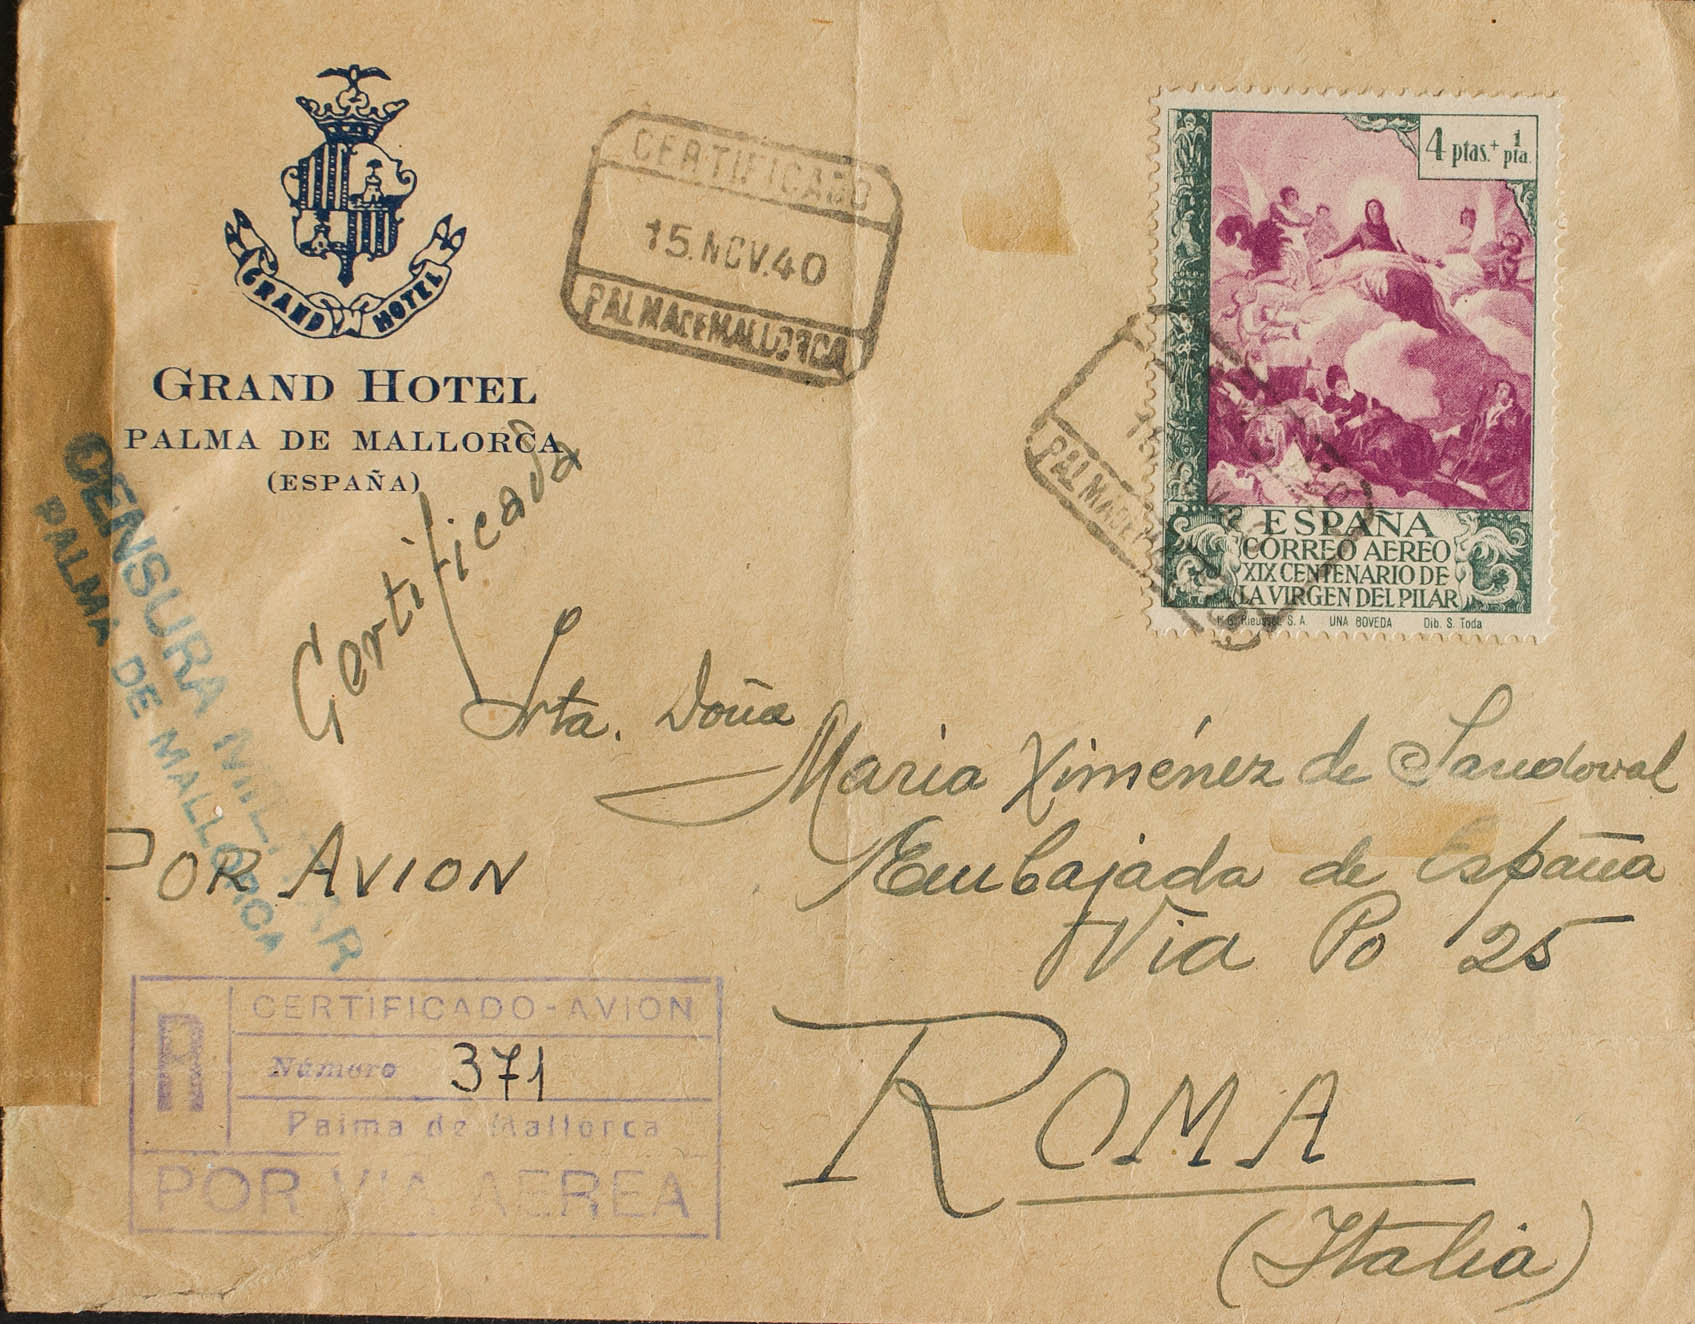 GRAND HOTEL
GRAND HOTEL
PALMA DE MALLORCA
(ESPAÑA)
CERTIFICADO
15.NOV.40
PALMA DE MALLORCA
4 ptas.+ 1 pta.
ESPAÑA
CORREO AEREO
XIX CENTENARIO DE
LA VIRGEN DEL PILAR
Rieusset S. A. UNA BOVEDA Dib. S. Toda
PALMA DE
CENSURA MILITAR
PALMA DE MALLORCA
Certificada
Srta. Doña
Maria Ximénez de Sandoval
POR AVION
Embajada de España
Via Po 25
ROMA
(Italia)
R
CERTIFICADO-AVION
Número 371
Palma de Mallorca
POR VIA AEREA